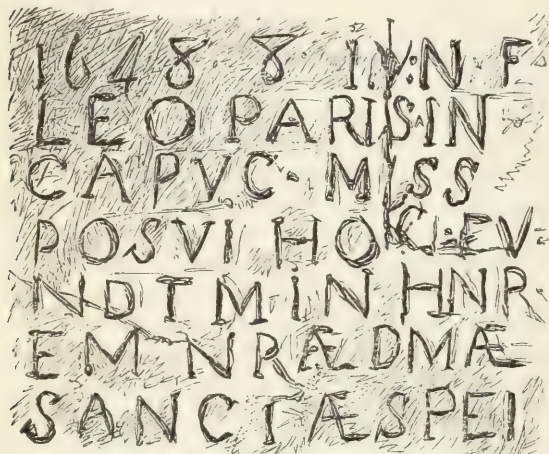 1648 8 IVN F
LEO PARISIN
CAPVC· MISS
POSVI HOC FV
NDTM IN HNR
EM NRÆ DMÆ
SANCTÆ SPEI